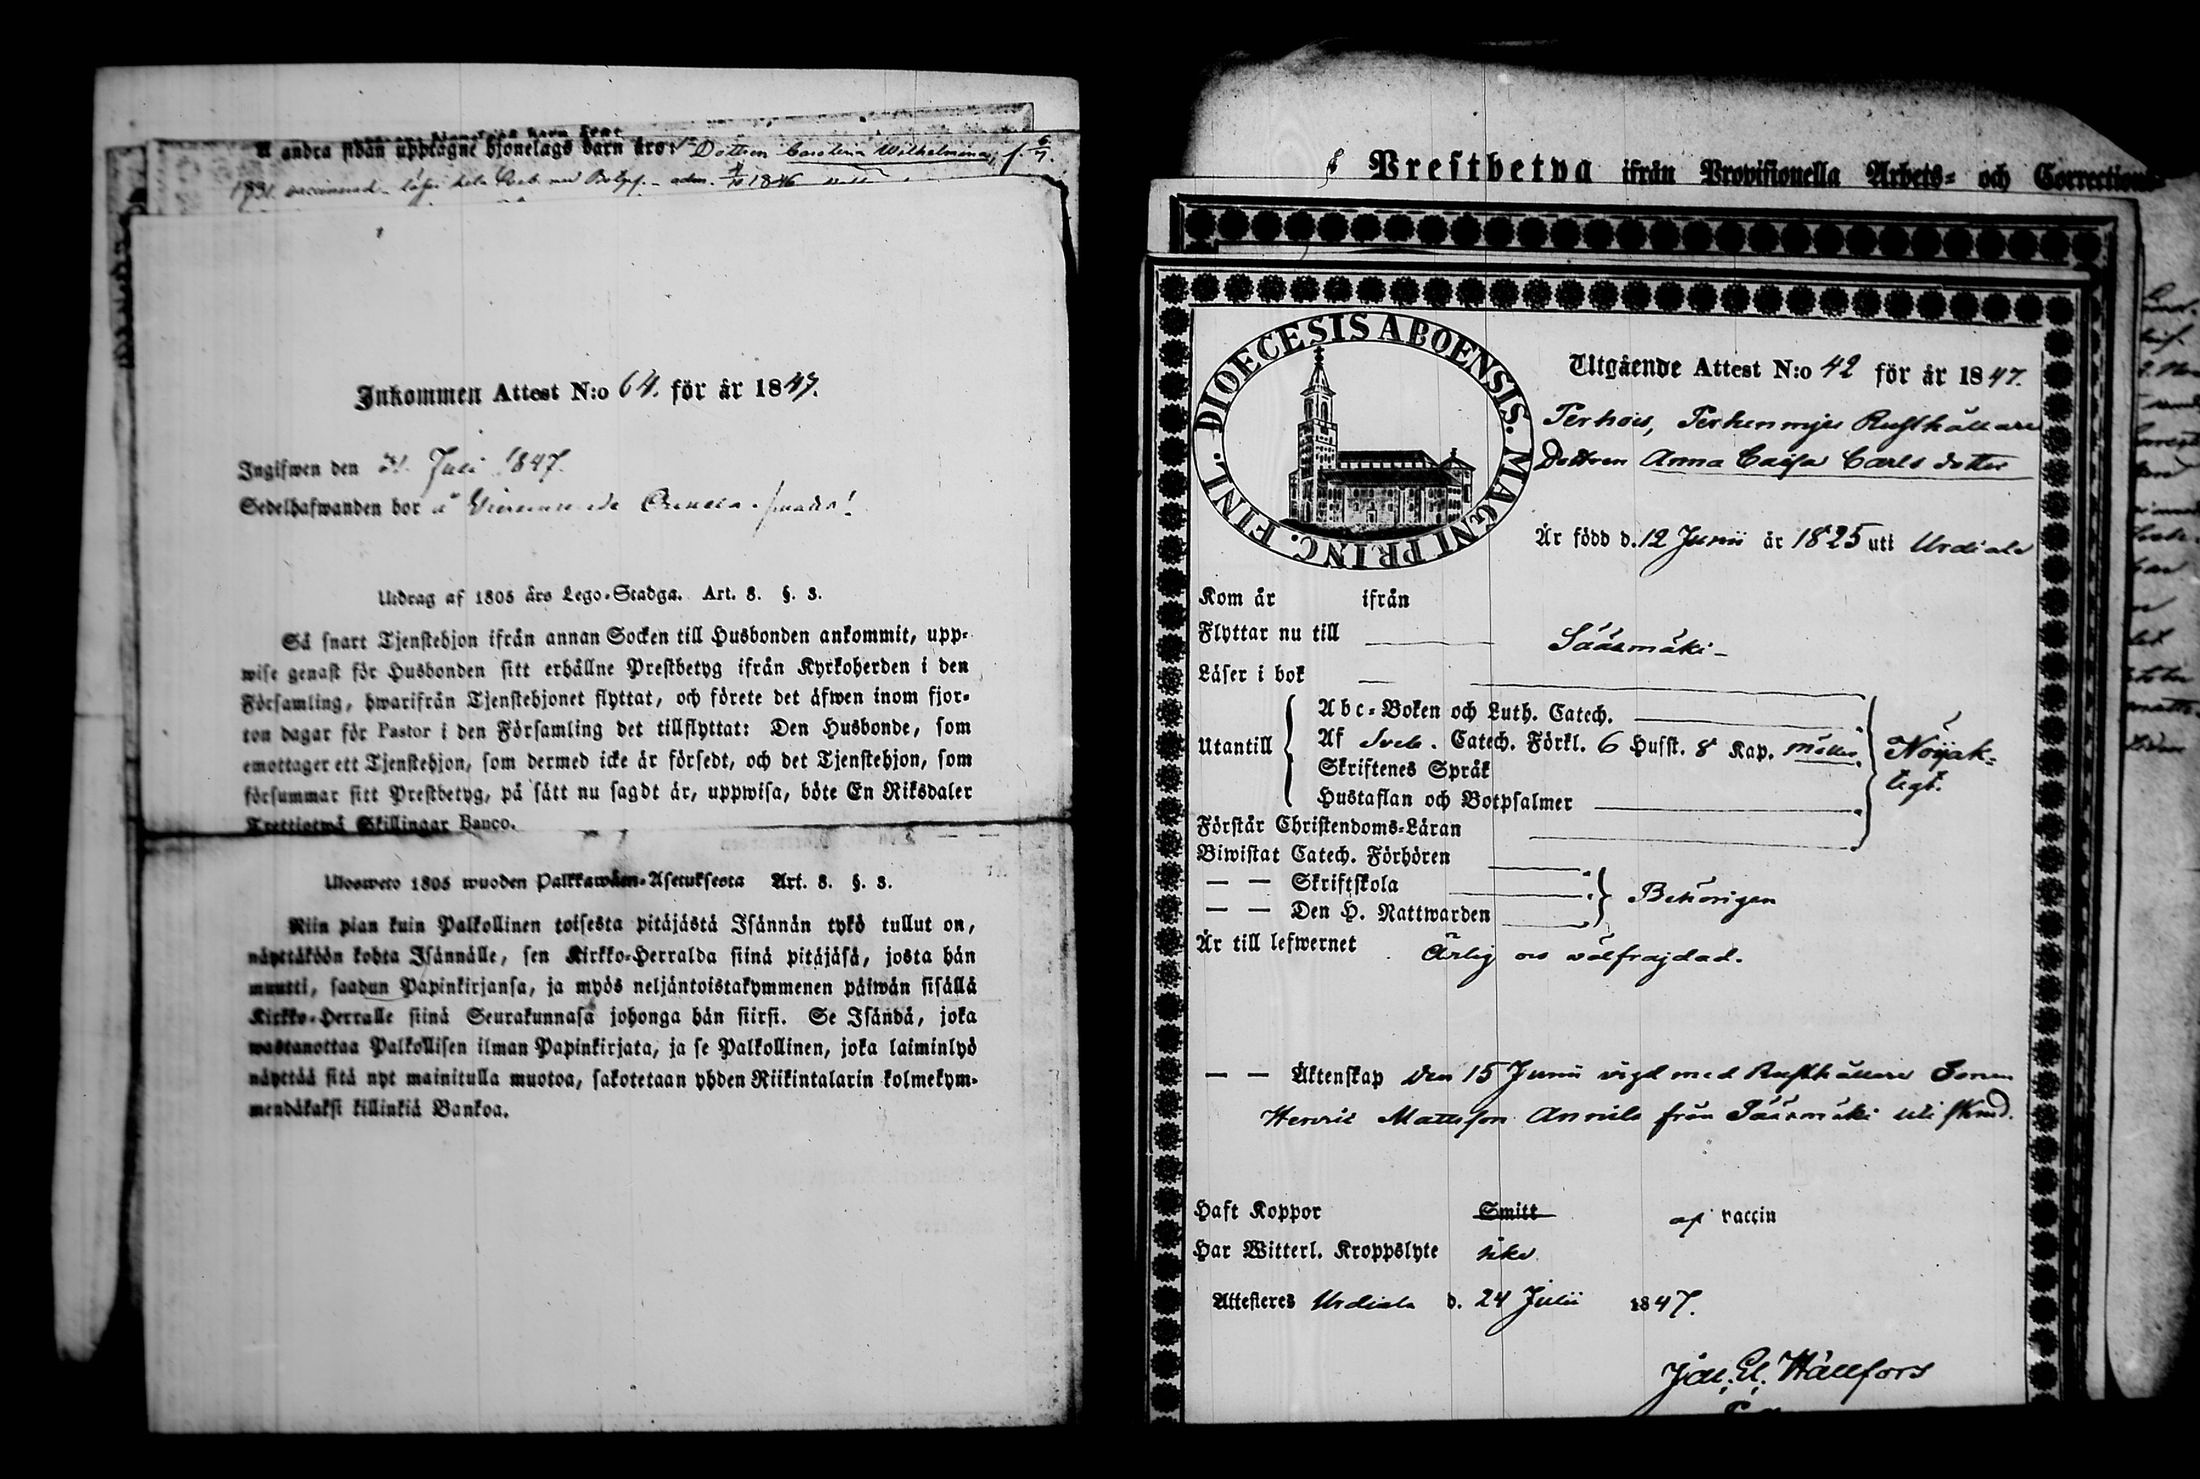 å andra sidan upptagne hjonelags barn äro: Dottren Carolina Wilhelmina, f. 6/7.
1831. vaccinerad
Inkommen Attest N:o 64. för år 1847.
Ingifwen den 31. Juli 1847.
Sedelhafwanden bor å
Utdrag af 1805 års Lego-Stadga. Art. 8. §. 3.
Så snart Tjenstehjon ifrån annan Socken till Husbonden ankommit, upp-
wise genast för Husbonden sitt erhållne Prestbetyg ifrån Kyrkoherden i den
Församling, hwarifrån Tjenstehjonet flyttat, och förete det äfwen inom fjor-
ton dagar för Pastor i den Församling det tillflyttat: Den Husbonde, som
emottager ett Tjenstehjon, som dermed icke är försedt, och det Tjenstehjon, som
försummar sitt Prestbetyg, på sätt nu sagdt är, uppwisa, böte En Riksdaler
Trettiotwå Skillingar Banco.
Ulosweto 1805 wuoden Palkkawäen-Asetuksesta Art. 8. §. 3.
Niin pian kuin Palkollinen toisesta pitäjästä Isännän tykö tullut on,
näyttäköön kohta Isännälle, sen Kirkko-Herralda siinä pitäjäsä, josta hän
muutti, saadun Papinkirjansa, ja myös neljäntoistakymmenen päiwän sisällä
Kirkko-Herralle siinä Seurakunnasa johonga hän siirsi. Se Isändä, joka
wastanottaa Palkollisen ilman Papinkirjata, ja se Palkollinen, joka laiminlyö
näyttää sitä nyt mainitulla muotoa, sakotetaan yhden Riikintalarin kolmekym-
mendäkaksi killinkiä Bankoa.
Prestbetyg ifrån Provisionella Arbets- och Corrections-
DIOECESIS ABOENSIS. MAGNI PRINC. FINL.
Utgående Attest N:o 42 för år 1847.
Terhois, Terhenmyes Rusthållare
Dottren Anna Caisa Carls dotter
Är född d. 12 Junii år 1825 uti Urdiala
Kom år ifrån
Flyttar nu till Sääsmäki
Läser i bok
Utantill
Abc-Boken och Luth. Catech.
Af Sveb. Catech. Förkl. 6 Husst. 8 Kap. Möller
Skriftenes Språk
Hustaflan och Botpsalmer
Nöjak-
ligt.
Förstår Christendoms-Läran
Biwistat Catech. Förhören
— — Skriftskola
— — Den H. Nattwarden
Behörigen
Är till lefwernet Ärlig och välfrejdad.
— — Äktenskap den 15 Junii vigd med Rusthållare Sonen
Henric Mattsson Annila från Sääsmäki
Haft Koppor Smitt af vaccin
Har Witterl. Kroppslyte icke
Attesteres Urdiala d. 24 Julii 1847.
Joh. El. Hällfors